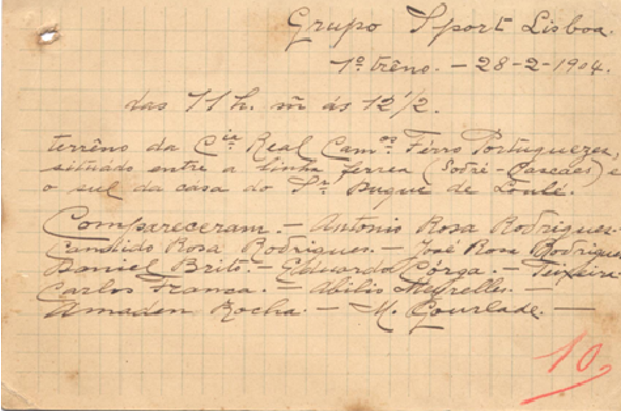 Grupo Sport Lisboa.
1º trêno. - 28-2-1904.
das 11 h. m ás 12 1/2.
terrêno da Cia Real Camos Ferro Portuguezes,
situádo entre a linha ferrea (Sodré-Cascaes) e
o sul da casa do Sr. Duque de Loulé.
Compareceram. - Antonio Rosa Rodrigues -
Candido Rosa Rodrigues. - José Rosa Rodrigues
Daniel Brito. - Eduardo Córga. - Teixeira
Carlos França. - Abilio Meyrelles. -
Amadeu Rocha. - M. Gourlade. -
10